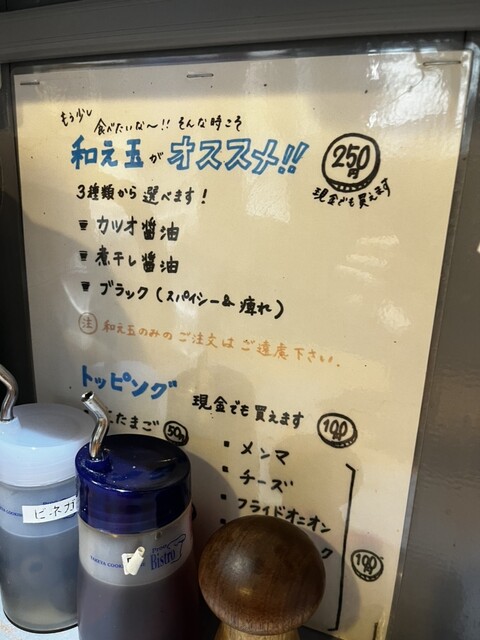 もう少し
食べたいな〜!! そんな時こそ
和え玉が オススメ!!
250円
現金でも買えます
3種類から選べます!
カツオ醤油
煮干し醤油
ブラック(スパイシー&痺れ)
注 和え玉のみのご注文はご遠慮下さい.
トッピング
現金でも買えます 100円
たまご 50円
メンマ
チーズ
フライドオニオン
ク
100円
ビネガ
Bistro